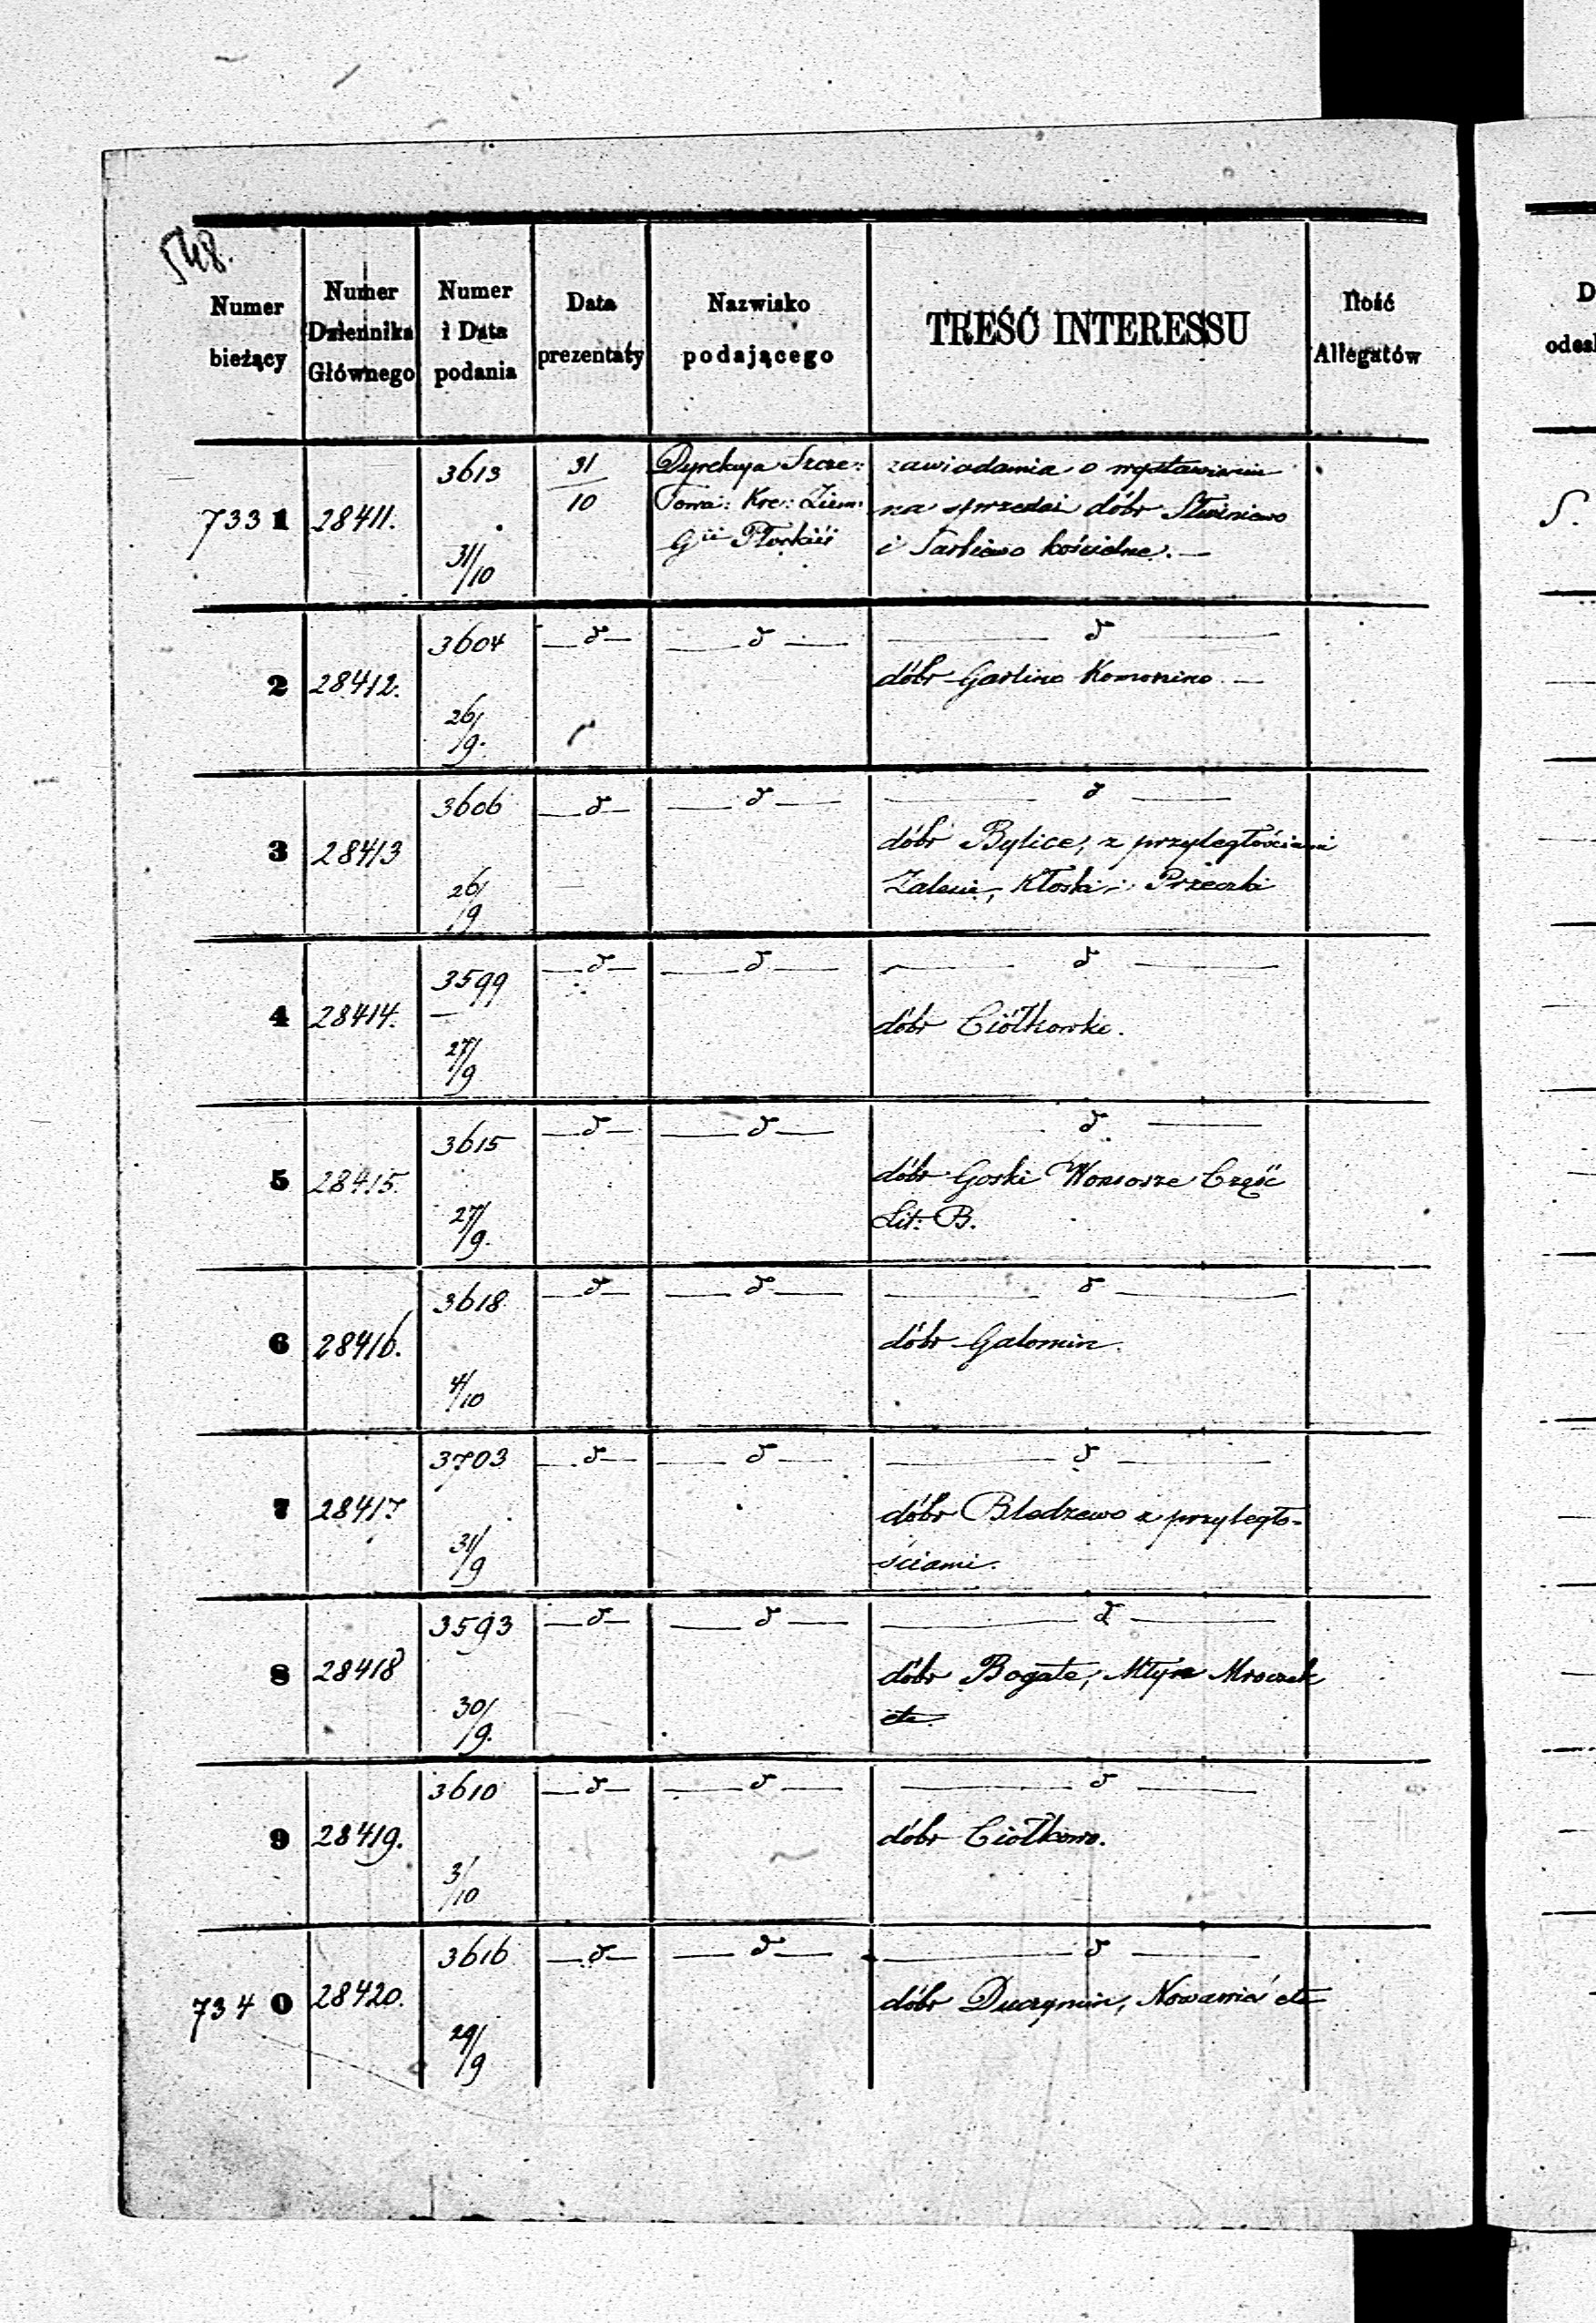 548.
Numer bieżący
Numer Dziennika Głównego
Numer i Data podania
Data prezentaty
Nazwisko podającego
TREŚĆ INTERESSU
Ilość Allegatów
7331 28411. 3613 31/10 31/10 Dyrekcya Szcze: zawiadamia o wystawieniu
Towa: Kre: Ziem: na sprzedaż dóbr
Gii Płockiéj i Sarbiewo kościelne. —
2 28412. 3604 26/9. — d — — d — — d —
dóbr Garlino Komonino —
3 28413 3606 26/9 — d — — d — — d —
dóbr Bylice, z przyległościami
Zalesie, Kłoski i
4 28414. 3599 27/9 — d — — d — — d —
dóbr Ciółkowke.
5 28415. 3615 27/9. — d — — d — d —
dóbr Goski Wonsosze Część
Lit: B.
6 28416. 3618 4/10 — d — — d — — d —
dóbr Galomin.
7 28417. 3703 31/9 — d — — d — — d —
dóbr Bledzewo z przyległo-
ściami.
8 28418 3593 30/9. — d — — d — — d —
dóbr Bogate, Młyn Mroczek
etc.
9 28419. 3610 3/10 — d — — d — — d —
dóbr Ciołkowo.
7340 28420. 3616 29/9 — d — — d — — d —
dóbr Duczymin, etc
S.